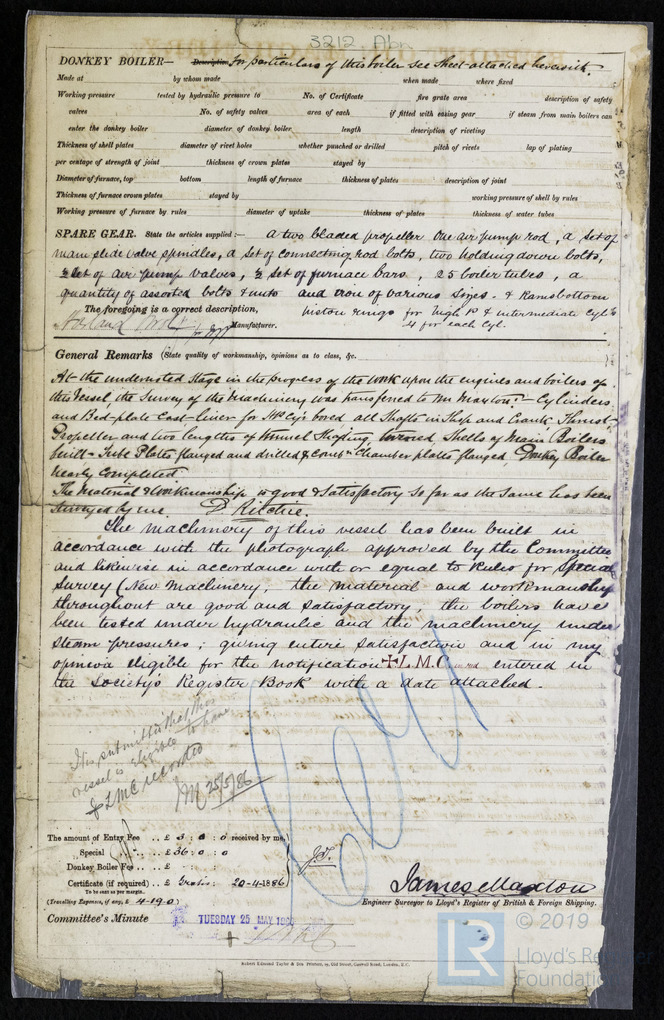 3212 Abn
DONKEY BOILER— Description For particulars of this boiler see Sheet attached herewith.
Made at by whom made when made where fixed
Working pressure tested by hydraulic pressure to No. of Certificate fire grate area description of safety
valves No. of safety valves area of each if fitted with easing gear if steam from main boilers can
enter the donkey boiler diameter of donkey boiler length description of riveting
Thickness of shell plates diameter of rivet holes whether punched or drilled pitch of rivets lap of plating
per centage of strength of joint thickness of crown plates stayed by
Diameter of furnace, top bottom length of furnace thickness of plates description of joint
Thickness of furnace crown plates stayed by working pressure of shell by rules
Working pressure of furnace by rules diameter of uptake thickness of plates thickness of water tubes
SPARE GEAR. State the articles supplied:— a two bladed propeller One air pump rod, a set of
main slide valve spindles, a set of connecting rod bolts, two holding down bolts,
½ set of air pump valves, ½ set of furnace bars, 25 boiler tubes, a
quantity of assorted bolts & nuts and iron of various sizes. & Ramsbottom
The foregoing is a correct description, piston rings for high P & intermediate Cyls
Manufacturer. 4 for each Cyl.
General Remarks (State quality of workmanship, opinions as to class, &c.
At the undernoted Stage in the progress of the work upon the engines and boilers of
this Vessel, the Survey of the Machinery was transferred to Mr Maxton:— Cylinders
and Bed-plate Cast-liner for bored, all Shafts in Shop and Crank, Thrust
Propeller and two lengths of tunnel Shafting turned Shells of Main Boilers
built— Tube Plates flanged and drilled & Combn Chamber plates flanged, Donkey Boiler
nearly Completed.
The Material & Workmanship is good & Satisfactory so far as the Same has been
Surveyed by me. D Ritchie.
The machinery of this vessel has been built in
accordance with the photograph approved by the Committee
and likewise in accordance with or equal to Rules for Special
Survey (New Machinery, the material and workmanship
throughout are good and satisfactory, the boilers have
been tested under hydraulic and the machinery under
steam pressures; giving entire satisfaction and in my
opinion eligible for the notification +L.M.C in red entered in
the Society's Register Book with a date attached.
It is submitted that this
vessel is eligible to have
+ LMC recorded
25/5/86
The amount of Entry Fee .. £ 3 : 0 : 0 received by me,
Special .. £ 36 : 0 : 0
Donkey Boiler Fee .. £ - : :
Certificate (if required) .. £ Gratis : 20-4-1886
To be sent as per margin.
(Travelling Expenses, if any, £ 4-19-0)
James Maxton
Engineer Surveyor to Lloyd's Register of British & Foreign Shipping.
Committee's Minute TUESDAY 25 MAY 1886
Robert Edmund Taylor & Son Printers, 19, Old Street, Goswell Road, London, E.C.
© 2019
LR
Lloyd's Register
Foundation